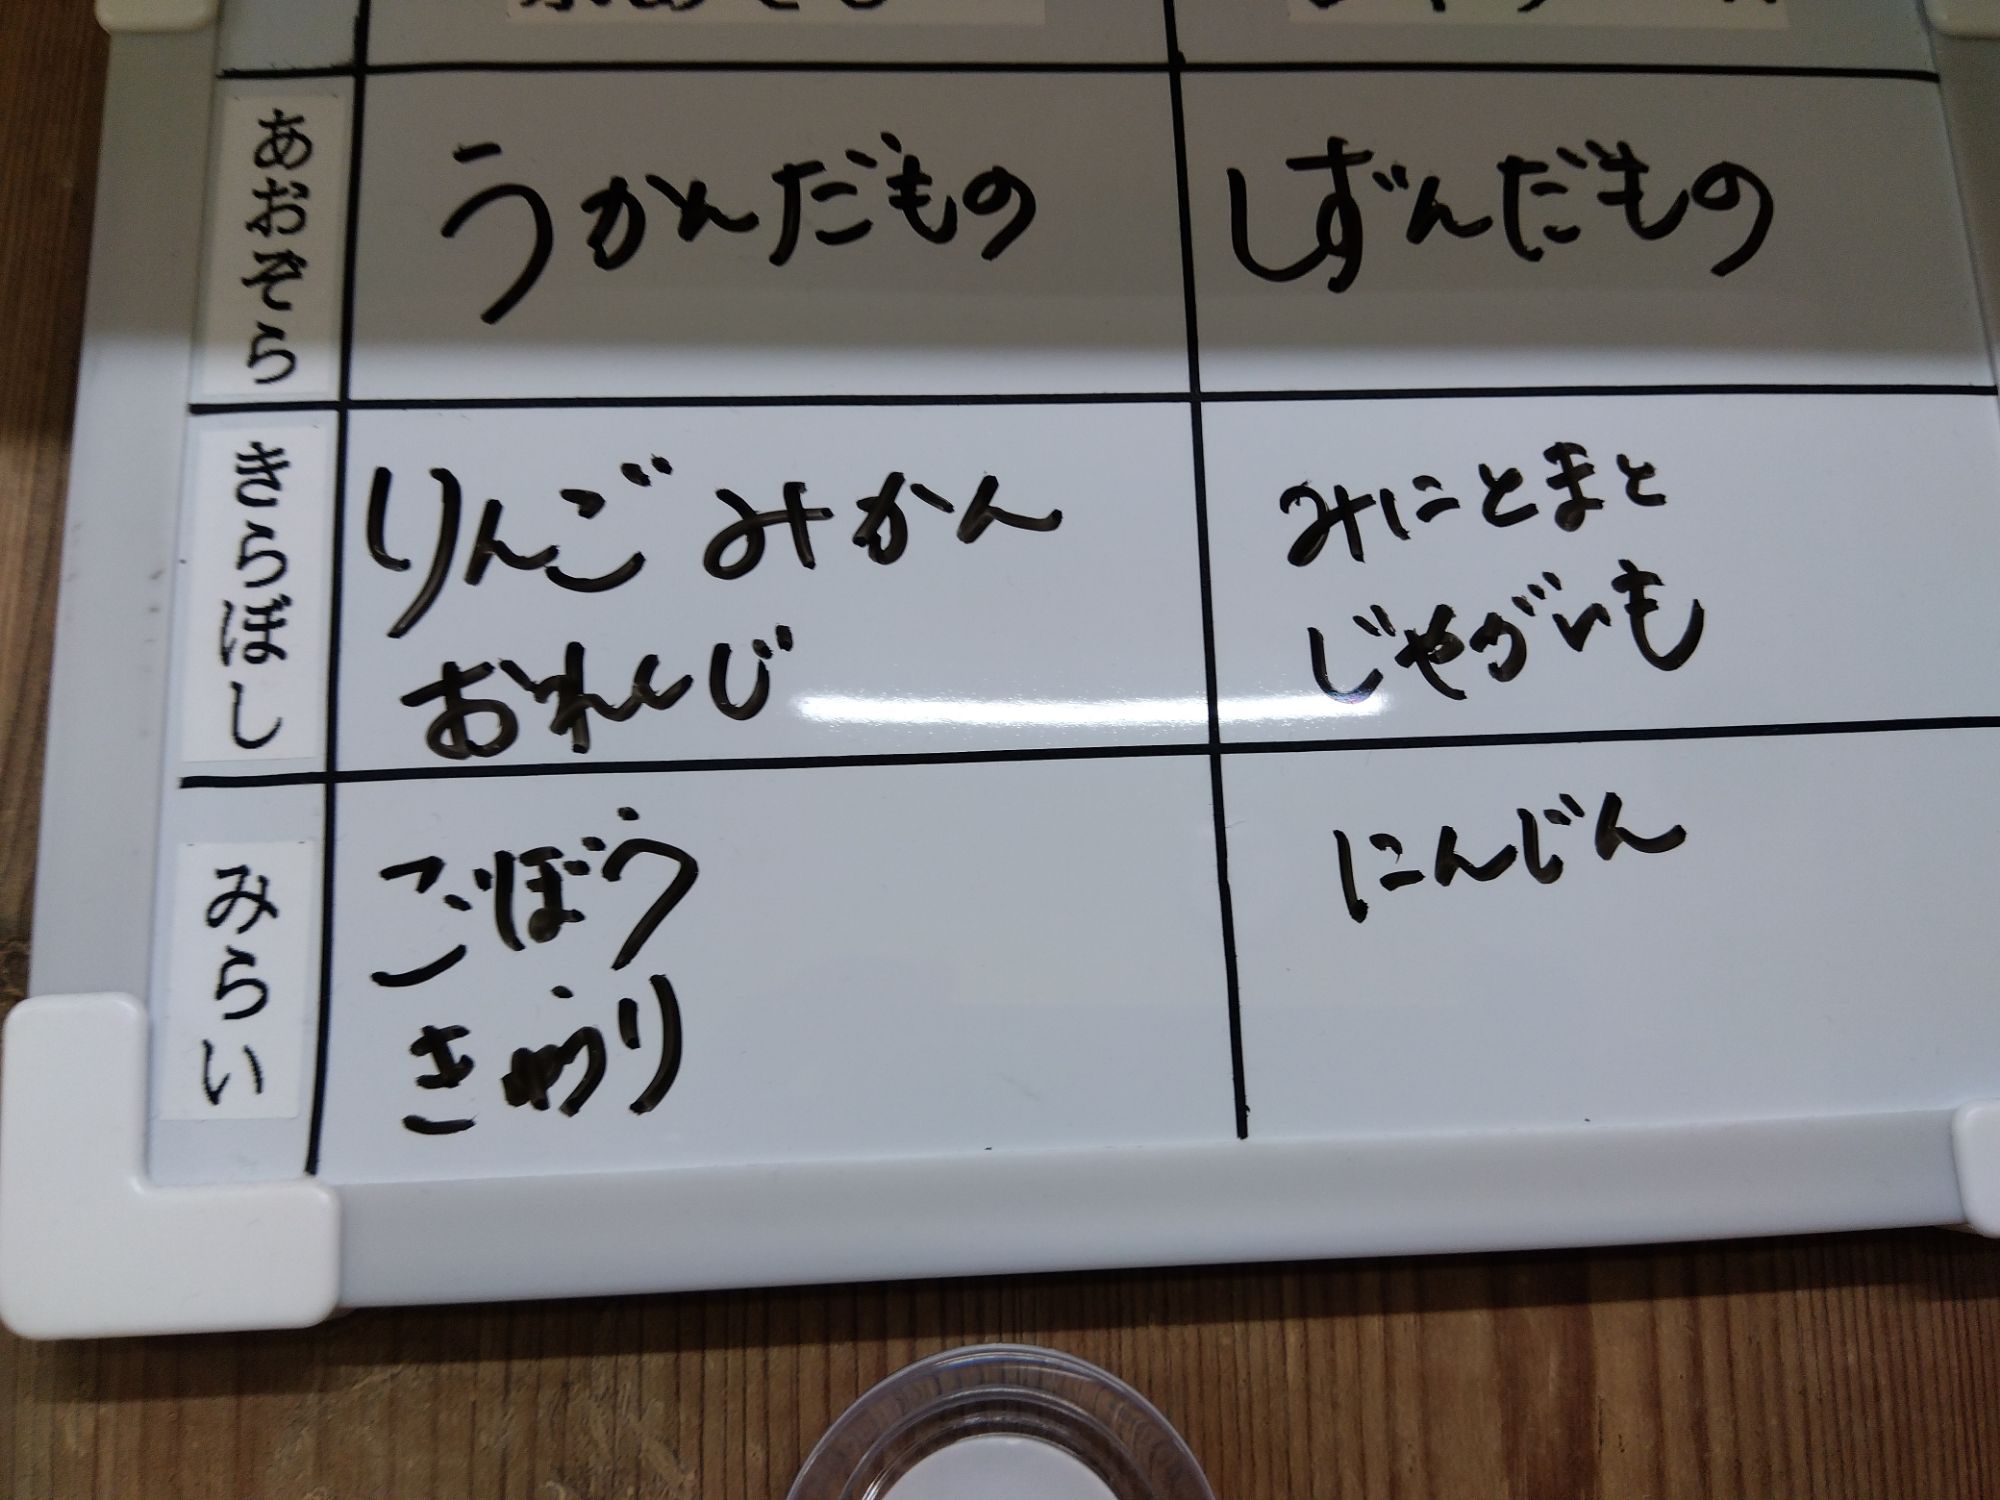 あおぞら
うかんだもの
しずんだもの
きらぼし
りんごみかん
おれんじ
みにとまと
じゃがいも
みらい
ごぼう
きゅうり
にんじん